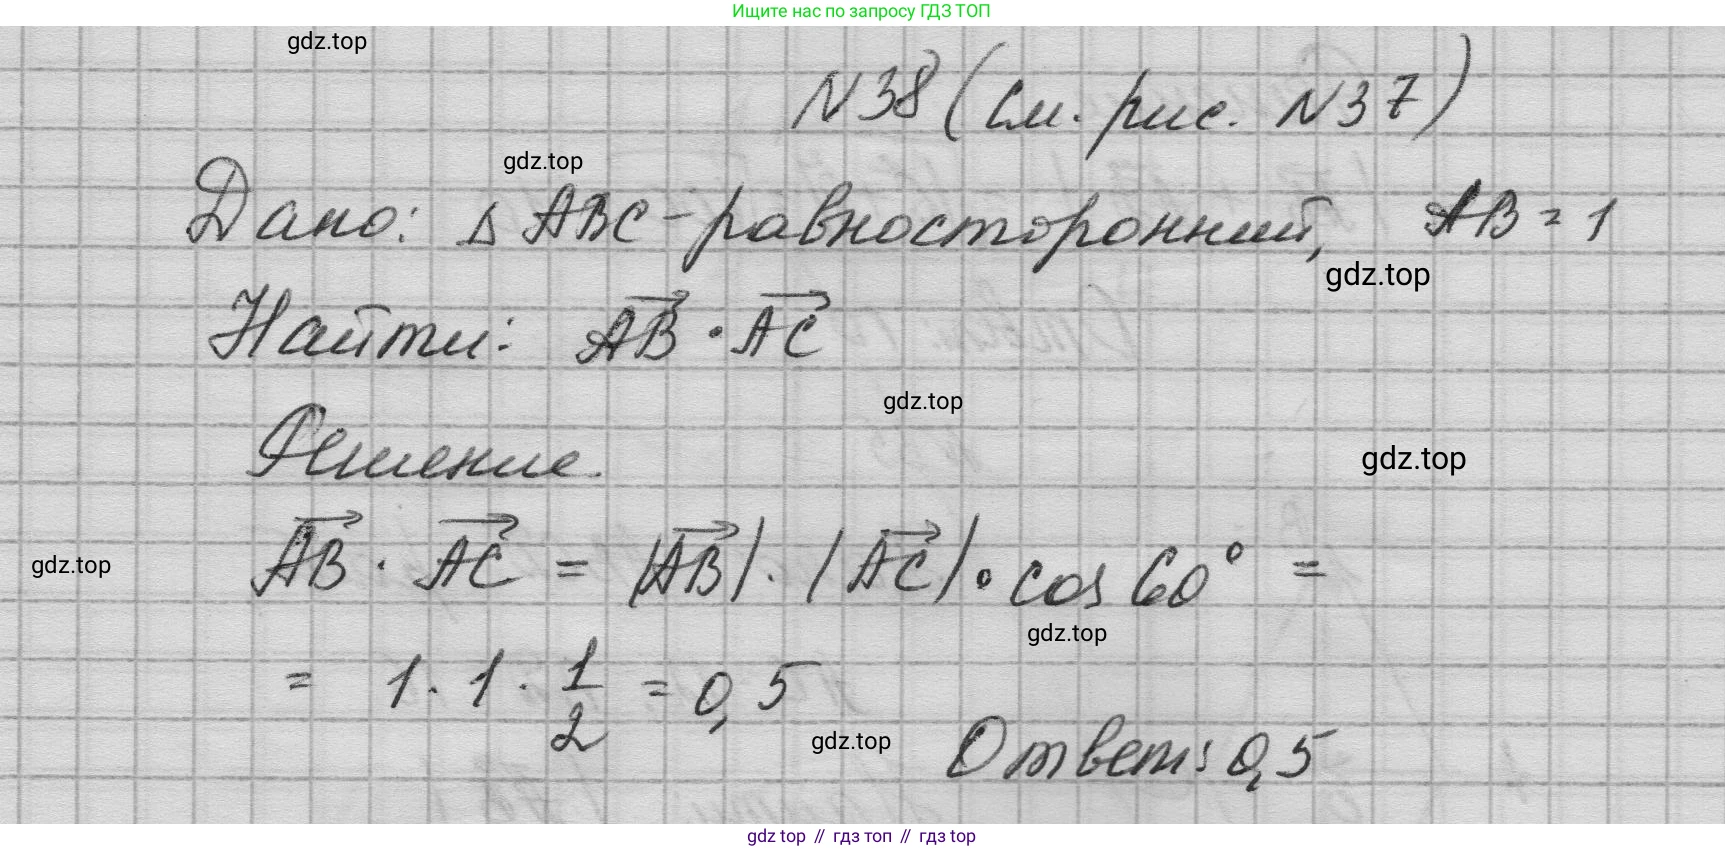 Ищите нас по запросу ГДЗ ТОП
gdz.top
N38 (см. рис. N37)
gdz.top
Дано: △ ABC - равносторонний, AB = 1
gdz.top
Найти: $\overrightarrow{AB} \cdot \overrightarrow{AC}$
gdz.top
Решение.
gdz.top
$\overrightarrow{AB} \cdot \overrightarrow{AC} = |\overrightarrow{AB}| \cdot |\overrightarrow{AC}| \cdot \cos 60° =$
gdz.top
gdz.top
$= 1 \cdot 1 \cdot \frac{1}{2} = 0,5$
gdz.top
Ответ: 0,5
gdz.top // гдз топ // гдз top